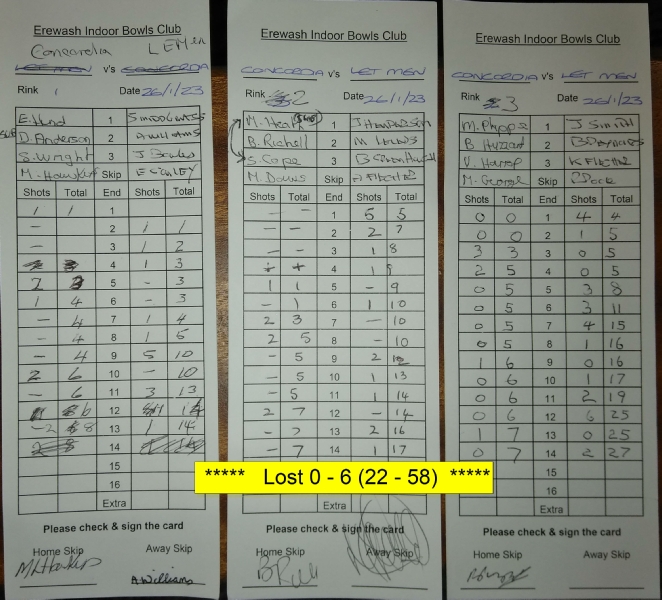 Erewash Indoor Bowls Club
Concordia LET Men
LET MEN v's CONCORDIA
Rink 1 Date 26/1/23
E. Hund 1
D. Anderson 2 A WILLIAMS
S. Wright 3
M. Hawkins Skip
Shots Total End Shots Total
1 1 1
- 2 1 1
- 3 1 2
4 1 3
5 - 3
1 4 6 - 3
- 4 7 1 4
- 4 8 1 5
- 4 9 5 10
2 6 10 - 10
- 6 11 3 13
12
13 1 14
14
15
16
Extra
Please check & sign the card
Home Skip Away Skip
A Williams
Erewash Indoor Bowls Club
CONCORDIA v's LET MEN
Rink 2 Date 26/1/23
M. Heath (SUB) 1 J HENDERSON
B. Richell 2
S. Cope 3
M. Downs Skip
Shots Total End Shots Total
- - 1 5 5
- - 2 2 7
- - 3 1 8
4 1 9
1 1 5 - 9
- 1 6 1 10
2 3 7 - 10
2 5 8 - 10
- 5 9 2 12
- 5 10 1 13
- 5 11 1 14
2 7 12 - 14
- 7 13 2 16
- 7 14 1 17
Extra
Please check & sign the card
Home Skip Away Skip
Erewash Indoor Bowls Club
CONCORDIA v's LET MEN
Rink 3 Date 26/1/23
M. Phipps 1 J SMITH
B Huzzard 2
V. Harrop 3
M. George Skip
Shots Total End Shots Total
0 0 1 4 4
0 0 2 1 5
3 3 3 0 5
2 5 4 0 5
0 5 5 3 8
0 5 6 3 11
0 5 7 4 15
0 5 8 1 16
1 6 9 0 16
0 6 10 1 17
0 6 11 2 19
0 6 12 6 25
1 7 13 0 25
0 7 14 2 27
15
16
Extra
Please check & sign the card
Home Skip Away Skip
***** Lost 0 - 6 (22 - 58) *****